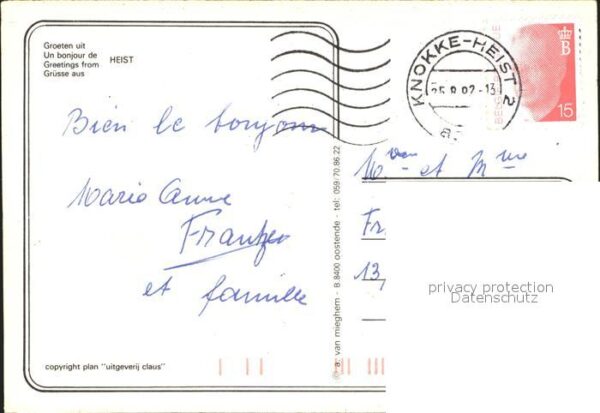 Groeten uit
Un bonjour de
Greetings from
Grüsse aus
HEIST
Bien le bonjour
Marie Anne
Frantzen
et famille
copyright plan "uitgeverij claus"
a. van mieghem - B 8400 oostende - tel: 059/70.86.22
KNOKKE-HEIST 2
25.8.92-13
BELGIE
B
15
et Mme
Fr
13,
privacy protection
Datenschutz